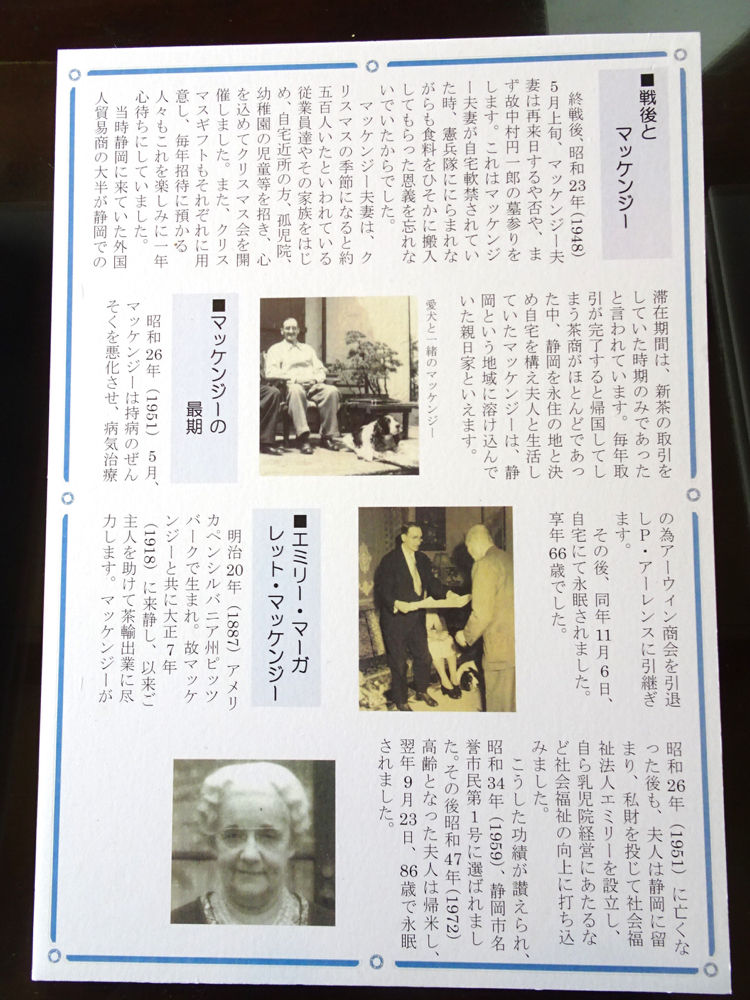 ■戦後と
マッケンジー
終戦後、昭和23年(1948)
5月上旬、マッケンジー夫
妻は再来日するや否や、ま
ず故中村円一郎の墓参りを
します。これはマッケンジ
ー夫妻が自宅軟禁されてい
た時、憲兵隊ににらまれな
がらも食料をひそかに搬入
してもらった恩義を忘れな
いでいたからでした。
マッケンジー夫妻は、ク
リスマスの季節になると約
五百人いたといわれている
従業員達やその家族をはじ
め、自宅近所の方、孤児院、
幼稚園の児童等を招き、心
を込めてクリスマス会を開
催しました。また、クリス
マスギフトもそれぞれに用
意し、毎年招待に預かる
人々もこれを楽しみに一年
心待ちにしていました。
当時静岡に来ていた外国
人貿易商の大半が静岡での
滞在期間は、新茶の取引を
していた時期のみであった
と言われています。毎年取
引が完了すると帰国してし
まう茶商がほとんどであっ
た中、静岡を永住の地と決
め自宅を構え夫人と生活し
ていたマッケンジーは、静
岡という地域に溶け込んで
いた親日家といえます。
愛犬と一緒のマッケンジー
■マッケンジーの
最期
昭和26年(1951)5月、
マッケンジーは持病のぜん
そくを悪化させ、病気治療
の為アーウィン商会を引退
しP・アーレンスに引継ぎ
ます。
その後、同年11月6日、
自宅にて永眠されました。
享年66歳でした。
■エミリー・マーガ
レット・マッケンジー
明治20年(1887)アメリ
カペンシルバニア州ピッツ
バークで生まれ。故マッケ
ンジーと共に大正7年
(1918)に来静し、以来ご
主人を助けて茶輸出業に尽
力します。マッケンジーが
昭和26年(1951)に亡くな
った後も、夫人は静岡に留
まり、私財を投じて社会福
祉法人エミリーを設立し、
自ら乳児院経営にあたるな
ど社会福祉の向上に打ち込
みました。
こうした功績が讃えられ、
昭和34年(1959)、静岡市名
誉市民第1号に選ばれまし
た。その後昭和47年(1972)
高齢となった夫人は帰米し、
翌年9月23日、86歳で永眠
されました。